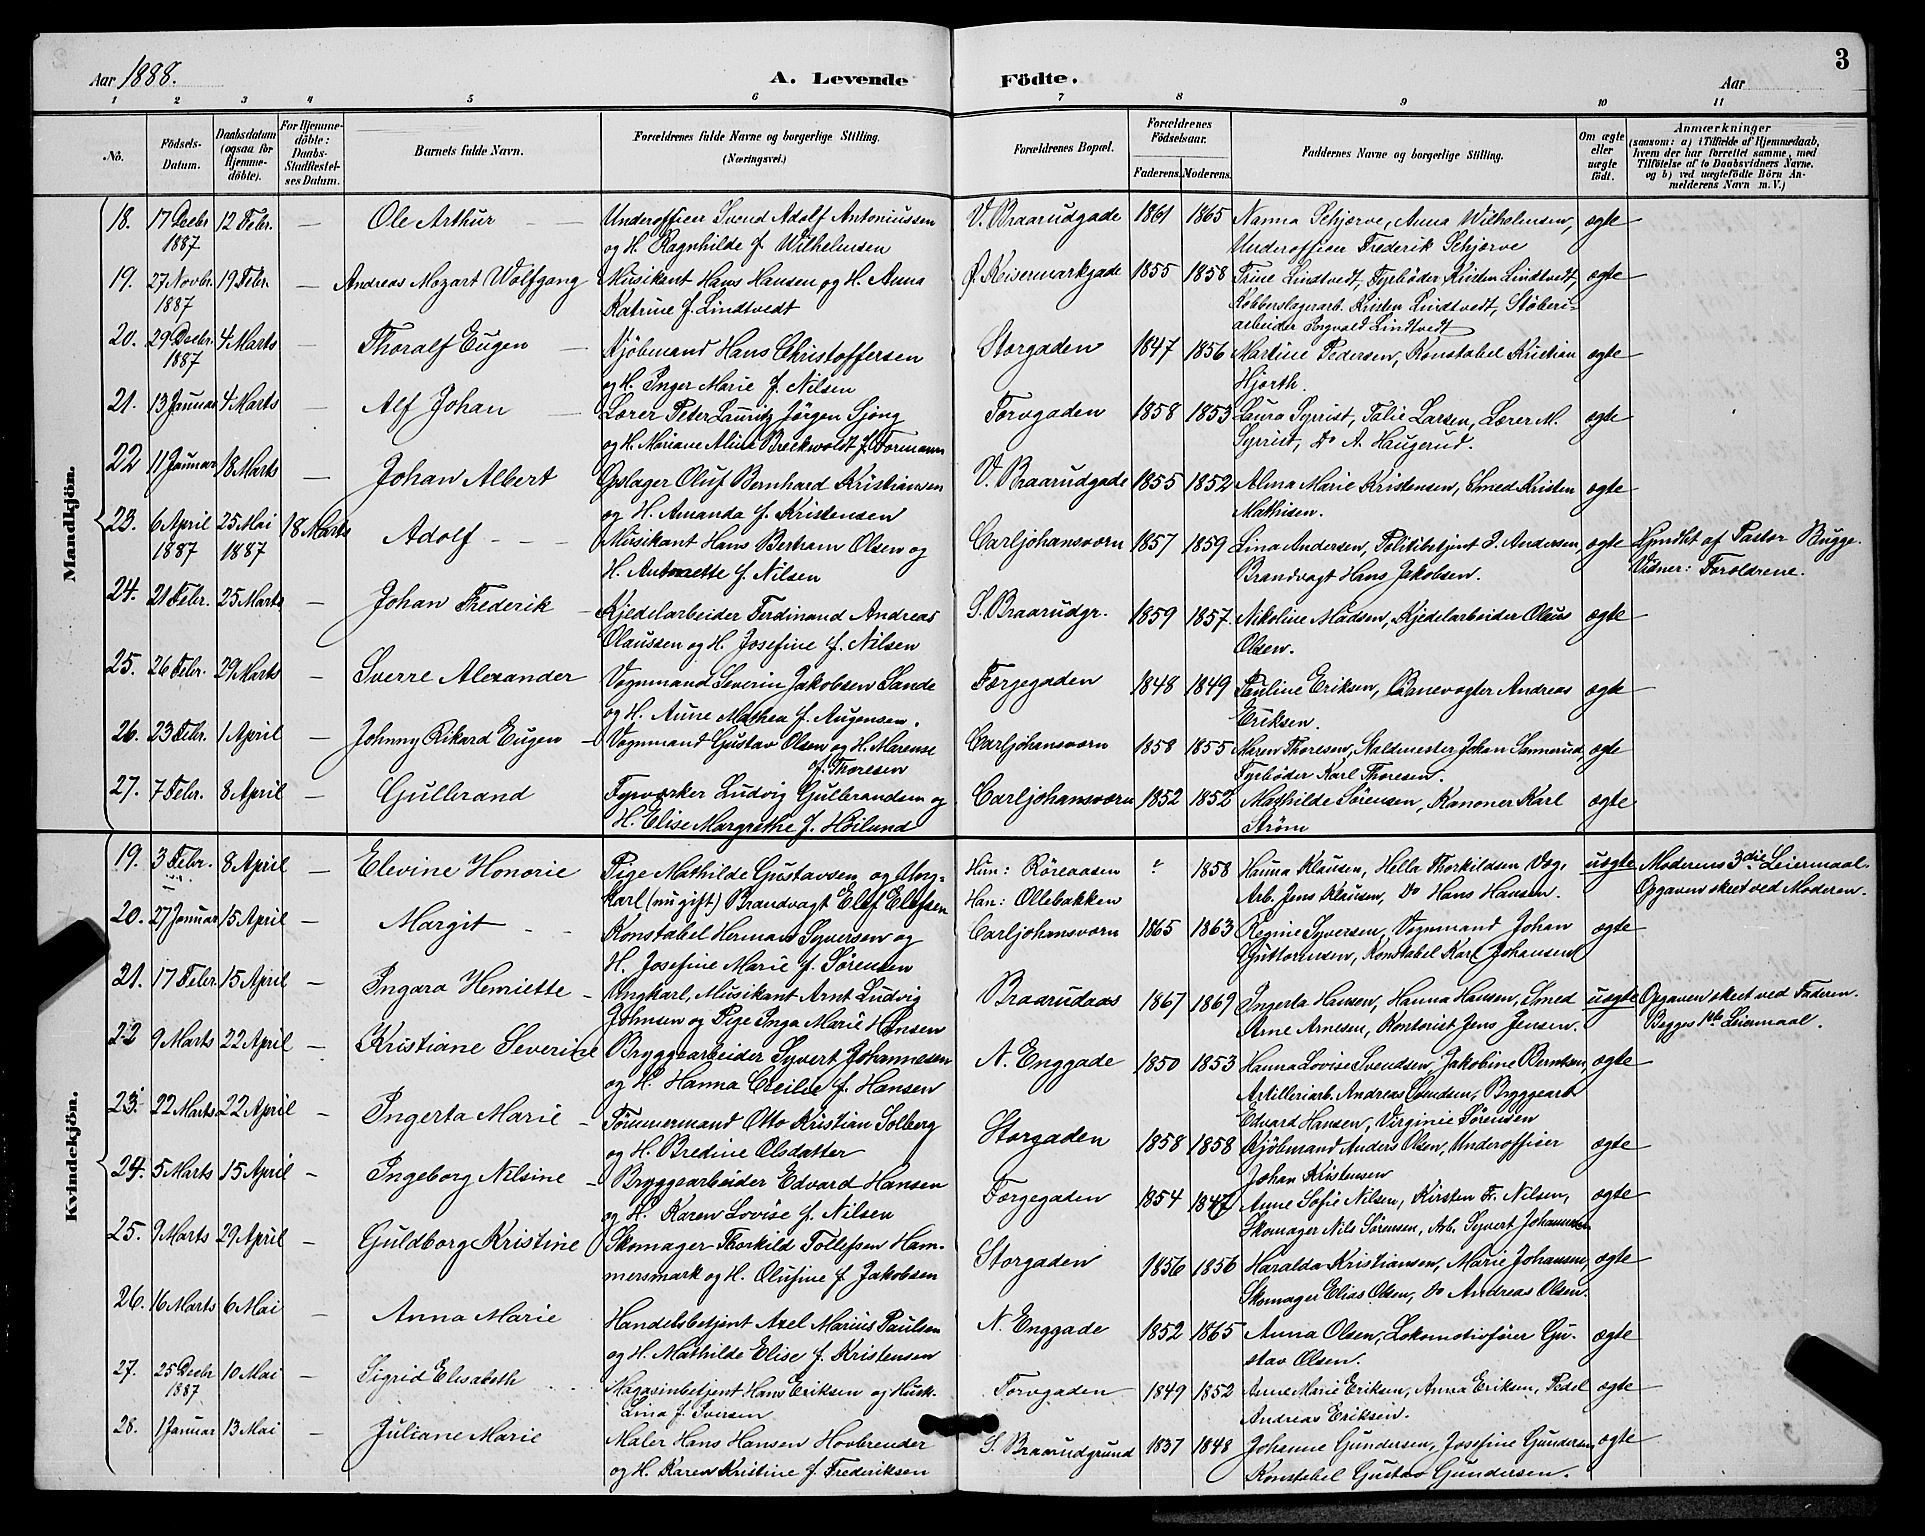 Aar 1888. A. Levende Födte. Aar 3
1 2 3 4 5 6 7 8 9 10 11
No. Födsels-Datum. Daabsdatum (ogsaa for Hjemmedöbte). For Hjemmedöbte: Daabs-Stadfæstelses Datum. Barnets fulde Navn. Forældrenes fulde Navne og borgerlige Stilling. (Næringsvei.) Forældrenes Bopæl. Forældrenes Födselsaar. Faderens. Moderens. Faddernes Navne og borgerlige Stilling. Om ægte eller uægte födt. Anmærkninger (saasom: a) i Tilfælde af Hjemmedaab, hvem der har forrettet samme, med Tilföielse af to Daabsvidners Navne. og b) ved uægtefödte Börn Anmelderens Navn m. V.)
Mandkjön.
18. 17 Decbr 12 Febr. — Ole Arthur Underofficer Svend Adolf Antoniussen V. Braarudgade 1861 1865 Nanna Schjerve, Anna Wilhelmsen, ægte
1887 og H. Ragnhilde f. Wilhelmsen Underofficer Frederik Schjerve
19. 27 Novbr. 19 Febr. — Andreas Mozart Wolfgang Musikant Hans Hansen og H. Anna Ø. Keisermarkgade 1855 1858 Trine Lindtvedt, Fyrbøder Kristen Lindtvedt, ægte
1887 Katrine f. Lindtvedt Kobberslagerarb. Kristen Lindtvedt, Støberi-
arbeider Ingvald Lindtvedt
20. 29 Decbr. 4 Marts — Thoralf Eugen Kjøbmand Hans Christoffersen Storgaden 1847 1856 Martine Pedersen, Konstabel Kristian ægte
1887 og H. Inger Marie f. Nilsen Hjorth.
21. 13 Januar 4 Marts — Alf Johan Lærer Peter Lauritz Jørgen Sjong Torvgaden 1858 1853 Laura Syrrist, Talie Larsen, Lærer M. ægte
og H. Mariane Aline Breckwoldt f. Formann Syrrist, Do A. Haugerud.
22 11 Januar 18 Marts — Johan Albert Opslager Oluf Bernhard Kristiansen V. Braarudgade 1855 1852 Alma Marie Kristensen, Smed Kristen ægte
og H. Amanda f. Kristensen Mathisen.
23. 6 April 25 Mai 18 Marts Adolf Musikant Hans Bertram Olsen og Carljohansværn 1857 1859 Lina Andersen, Politibetjent P. Andersen, ægte Kyndbt af Pastor Bugge.
1887 1887 H. Antonette f. Nilsen Brandvagt Hans Jakobsen. Vidner: Forældrene.
24. 21 Febr. 25 Marts — Johan Frederik Kjedelarbeider Ferdinand Andreas S. Braarudgr. 1859 1857. Nikoline Madsen, Kjedelarbeider Olaus ægte
Olaussen og H. Josefine f. Nilsen Olsen.
25. 26 Febr. 29 Marts — Sverre Alexander Vognmand Severin Jakobsen Sande Færgegaden 1848 1849 Pauline Eriksen, Banevogter Andreas ægte
og H. Anne Mathea f. Augensen. Eriksen.
26. 23 Febr. 1 April — Johnny Rikard Eugen Vognmand Gustav Olsen og H. Marense Carljohansværn 1858 1855 Maren Thoresen, Maldmester Johan Sannerud, ægte
f. Thoresen Fyrbøder Karl Thoresen.
27. 7 Febr. 8 April — Gulbrand Fyrværker Ludvig Gulbrandsen og Carljohansværn 1852 1852 Mathilde Sørensen, Kanoner Karl ægte
H. Elise Margrethe f. Høilund Strøm
Kvindekjön.
19. 3 Febr. 8 April — Elevine Honorie Pige Mathilde Gustavsen og Ung- Hun: Röreaasen 1858 Hanna Klausen, Hella Thorkildsen, Væg. uægte Moderens 3die Leiermaal.
karl (nu gift) Brandvagt Elef Elefsen Han: Ollebakken Arb. Jens Klausen, Do Hans Hansen. Opgaven skeet ved Moderen.
20. 27 Januar 15 April Margit Konstabel Herman Syversen og Carljohansværn 1865 1863 Regine Syversen, Vognmand Johan ægte
H. Josefine Marie f. Sørensen Guttormsen, Konstabel Karl Johansen
21. 17 Febr. 15 April — Ingara Henriette Ungkarl, Musikant Arnt Ludvig Braarudaas 1867 1869 Ingerta Hansen, Hanna Hansen, Smed uægte Opgaven skeet ved Faderen.
Johnsen og Pige Inga Marie Hansen Arne Arnesen, Kontorist Jens Jensen. Begges 1ste Leiermaal.
22 9 Marts 22 April — Kristiane Severine Bryggearbeider Syvert Johannesen N. Enggade 1850 1853 Hanna Lovise Svendsen, Jakobine Berntsen, ægte
og H. Hanna Cecilie f. Hansen Artilleriarb. Andreas Svendsen, Bryggearb
Edvard Hansen, Virginie Sørensen
23. 22 Marts 22 April — Ingerta Marie Tømmermand Otto Kristian Solberg Storgaden 1858 1858 Kjöbmand Anders Olsen, Underofficer ægte
og H. Bredine Olsdatter Johan Kristensen
24. 5 Marts 15 April — Ingeborg Nilsine Bryggearbeider Edvard Hansen Færgegaden 1854 1847 Anne Sofie Nilsen, Kirsten F. Nilsen, ægte
og H. Karen Lovise f. Nilsen Skomager Nils Sørensen, Arb. Syvert Johannesen
25. 9 Marts 29 April — Guldborg Kristine Skomager Thorkild Tollefsen Ham- Storgaden 1856 1856 Haralda Kristiansen, Marie Johansen, ægte
mersmark og H. Olufine f. Jakobsen Skomager Elias Olsen, Do Andreas Olsen.
26. 16 Marts 6 Mai — Anna Marie Handelsbetjent Axel Marius Paulsen N. Enggade 1852 1865 Anna Olsen, Lokomotivfører Gu- ægte
og H. Mathilde Elise f. Kristensen stav Olsen.
27. 25 Decbr 10 Mai — Sigrid Elisabeth Magasinbetjent Hans Eriksen og Husk. Torvgaden 1849 1852 Anne Marie Eriksen, Anna Eriksen, Pedel ægte
1887 Lina f. Iversen Andreas Eriksen.
28. 1 Januar 13 Mai — Juliane Marie Maler Hans Hansen Hovbrender S. Braarudgrund 1837 1848 Johanne Gundersen, Josefine Gundersen ægte
og H. Karen Kristine f. Frederiksen Konstabel Gustav Gundersen.